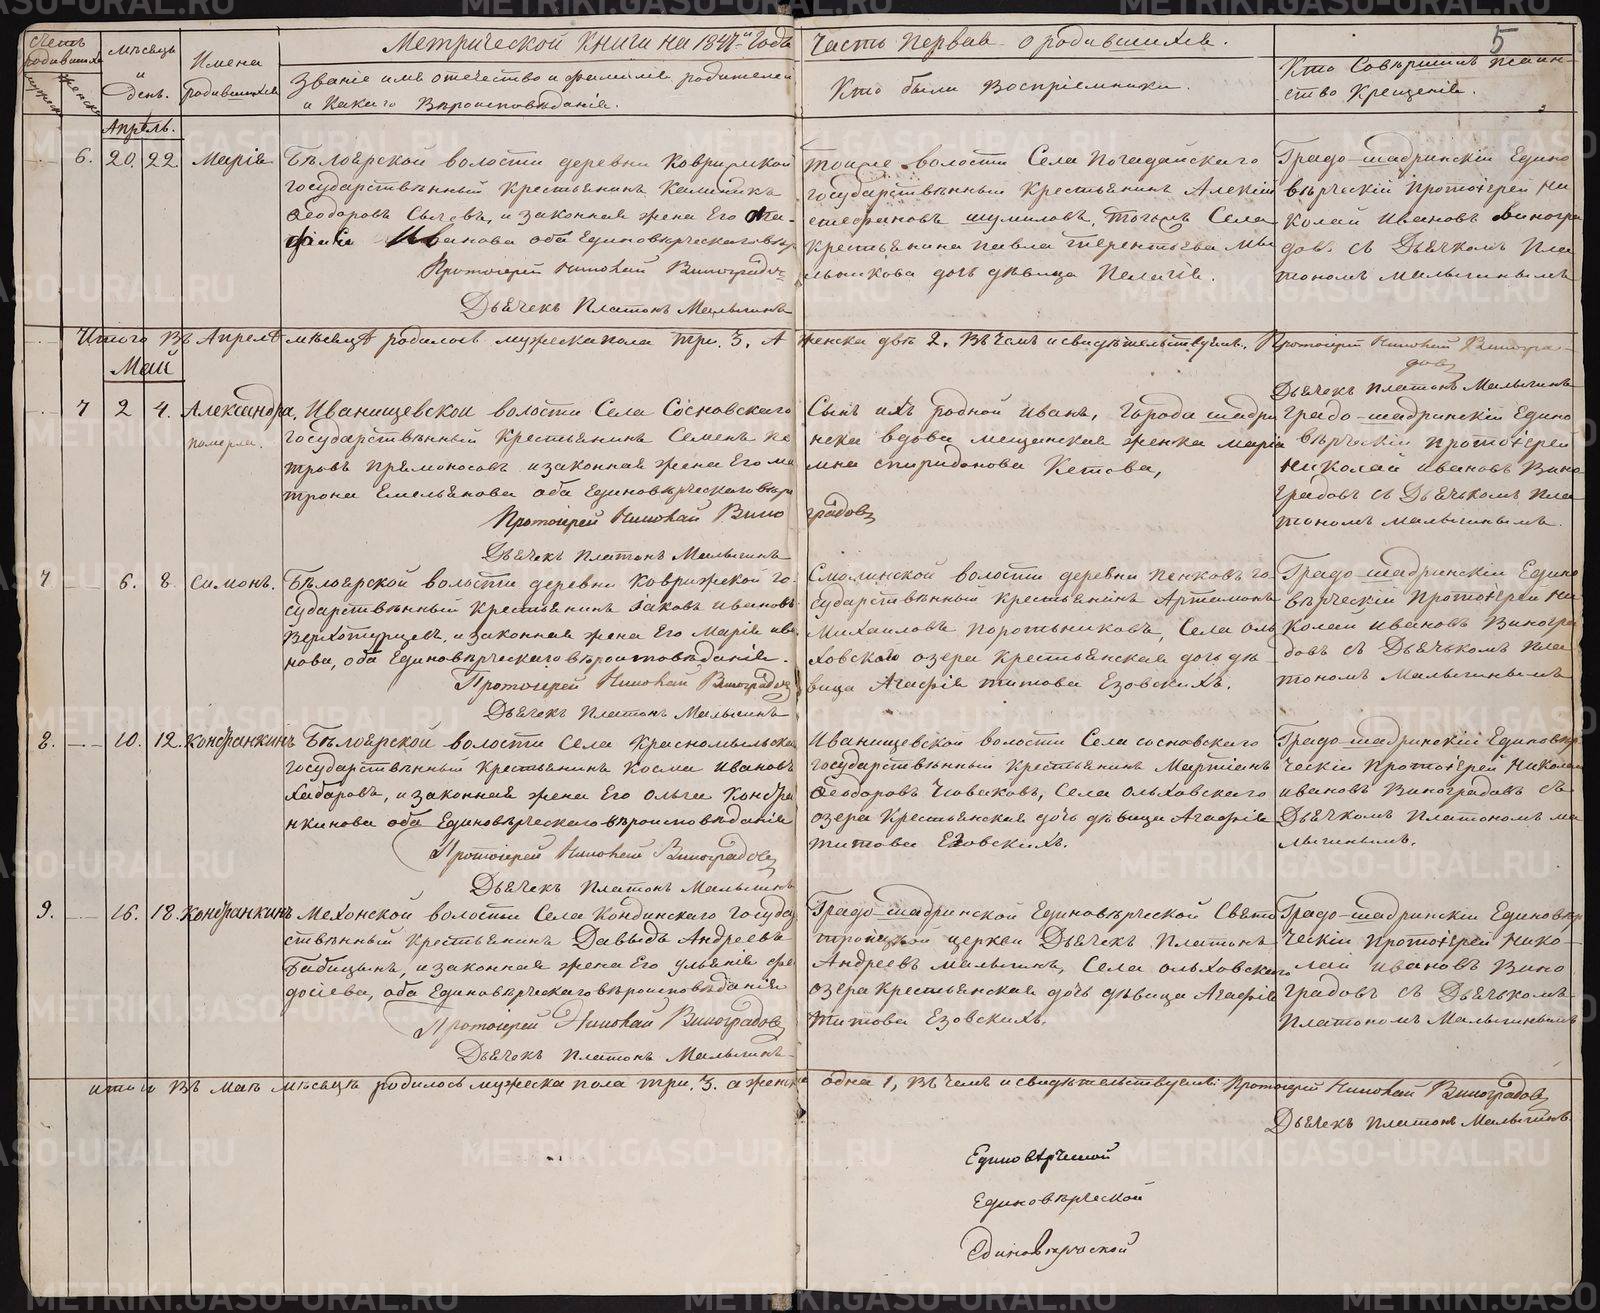 Метрической Книги на 1847й годъ часть первая о родившихся.
5
Счетъ родившихся
мужеска
женска
Мѣсяцъ и день.
Имена родившихся
Званіе имя отечество и фамилія родителей
и какого вѣроисповѣданія.
Кто были воспріемники.
Кто совершилъ таин-
ство крещенія.
Апрѣль.
6. 20. 22. Марія
Бѣлоярской волости деревни Коврижской
государствѣнный крестьянинъ Калинникъ
Ѳеодоровъ Сычевъ, и законная жена Его
Иванова оба Единовѣрческаго вѣр
Протоіерей Николай Виноградов
Дьячекъ Платонъ Малыгинъ
тойже волости Села Погадайскаго
государствѣнный крестьянинъ Алексій
стефановъ шумиловъ, тогожъ Села
крестьянина павла терентьева Мы
льникова дочь дѣвица Пелагія.
Градо-шадринскій Едино
вѣрческій протоіерей Ни
колай Ивановъ Виногра
довъ съ Дьячкомъ Пла
тономъ Малыгинымъ
Итого въ Апрелѣ мѣсяцѣ родилось мужеска пола три. 3. А женска двѣ 2. Въ чемъ и свидѣтельствуемъ. Протоіерей Николай Виногра-
довъ
Дьячекъ Платонъ Малыгинъ
Май
7 2 4. Александра,
померла.
Иванищевской волости Села Сосновскаго
государствѣнный крестьянинъ Семенъ пе
тровъ прямоносовъ и законная жена Его ма
трона Емельянова оба Единовѣрческаго вѣры
Протоіерей Николай Вино
градовъ
Дьячекъ Платонъ Малыгинъ
Сынъ ихъ родной Иванъ, города шадри
нска вдова мещанская женка марія
мна спиридонова Кетова,
градо-шадринскій Едино
вѣрческій протоіерей
Николай Ивановъ Вино
градовъ съ Дьячькомъ Пла
тономъ Малыгинымъ.
7 6. 8. Симонъ.
Бѣлоярской волости деревни Коврижской го-
сударствѣнный крестьянинъ Іаковъ Ивановъ
Верхотурцевъ, и законная жена Его Марія ива
нова, оба Единовѣрческаго вѣроисповѣданія.
Протоіерей Николай Виноградовъ
Дьячекъ Платонъ Малыгинъ
Смолинской волости деревни пенковъ го
сударствѣнный крестьянинъ Артамонъ
Михаиловъ поротниковъ, Села оль
ховскаго озера крестьянская дочь дѣ-
вица Агафія титова Езовскихъ.
Градо-шадринскій Едино
вѣрческій Протоіерей Ни
колай Ивановъ Виногра
довъ съ Дьячькомъ Пла
тономъ Малыгинымъ
8. 10. 12. Кондранкинъ
Бѣлоярской волости Села Красномыльска
государствѣнный крестьянинъ Косма Ивановъ
Хабаровъ, и законная жена Его Ольга Кондра
нкинова оба Единовѣрческаго вѣроисповѣданія
Протоіерей Николай Виноградовъ
Дьячекъ Платонъ Малыгинъ
Иванищевской волости Села сосновскаго
государствѣнный крестьянинъ Мартіанъ
Ѳеодоровъ Човыковъ, Села ольховскаго
озера Крестьянская дочь дѣвица Агафія
титова Езовскихъ.
Градо-шадринскій Единовѣр
ческій протоіерей Николай
Ивановъ Виноградовъ съ
Дьячкомъ Платономъ ма
лыгинымъ.
9. 16. 18. Кондранкинъ
Мехонской волости Села Кондинскаго госуда
ствѣнный крестьянинъ Давыдъ Андреевъ
Бабицынъ, и законная жена Его ульянія фе
досіева, оба Единовѣрческаго вѣроисповѣданія
Протоіерей Николай Виноградовъ
Дьячекъ Платонъ Малыгинъ
Градо-шадринской Единовѣрческой Свято
троицкой церкви Дьячекъ Платонъ
Андреевъ малыгинъ, Села ольховскаго
озера крестьянская дочь дѣвица Агафія
титова Езовскихъ.
Градо-шадринскій Единовѣр
ческій протоіерей Нико-
лай Ивановъ Вино
градовъ съ Дьячькомъ
Платономъ Малыгинымъ
итого въ маѣ мѣсяцѣ родилось мужеска пола три. 3. а женска одна 1, въ чемъ и свидѣтельствуемъ: Протоіерей Николай Виноградовъ
Дьячекъ Платонъ Малыгинъ.
Единовѣрческой
Единовѣрческой
Единовѣрческой
METRIKI.GASO-URAL.RU